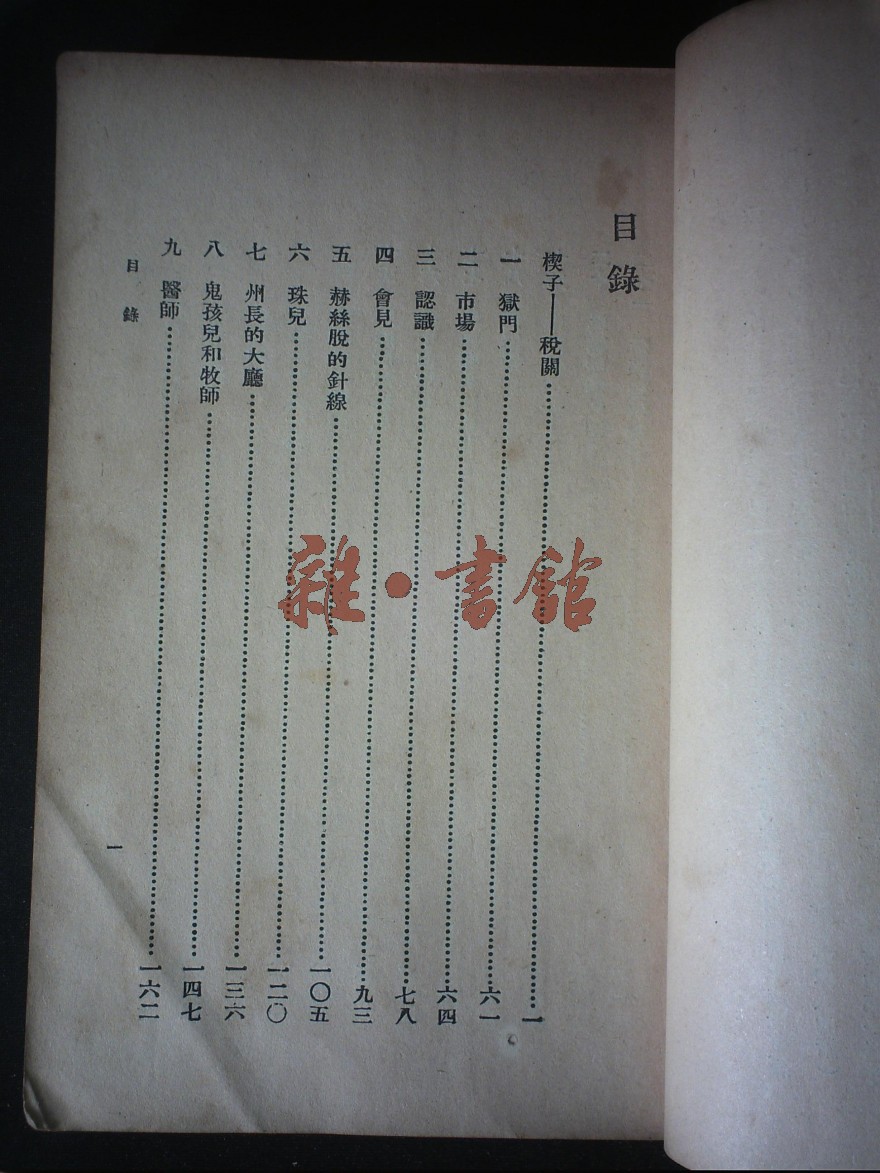 目錄
楔子——稅關……一
一 獄門……六一
二 市場……六四
三 認識……七八
四 會見……九三
五 赫絲脫的針線……一〇五
六 珠兒……一二〇
七 州長的大廳……一三六
八 鬼孩兒和牧師……一四七
九 醫師……一六二
目錄
一
雜·書館